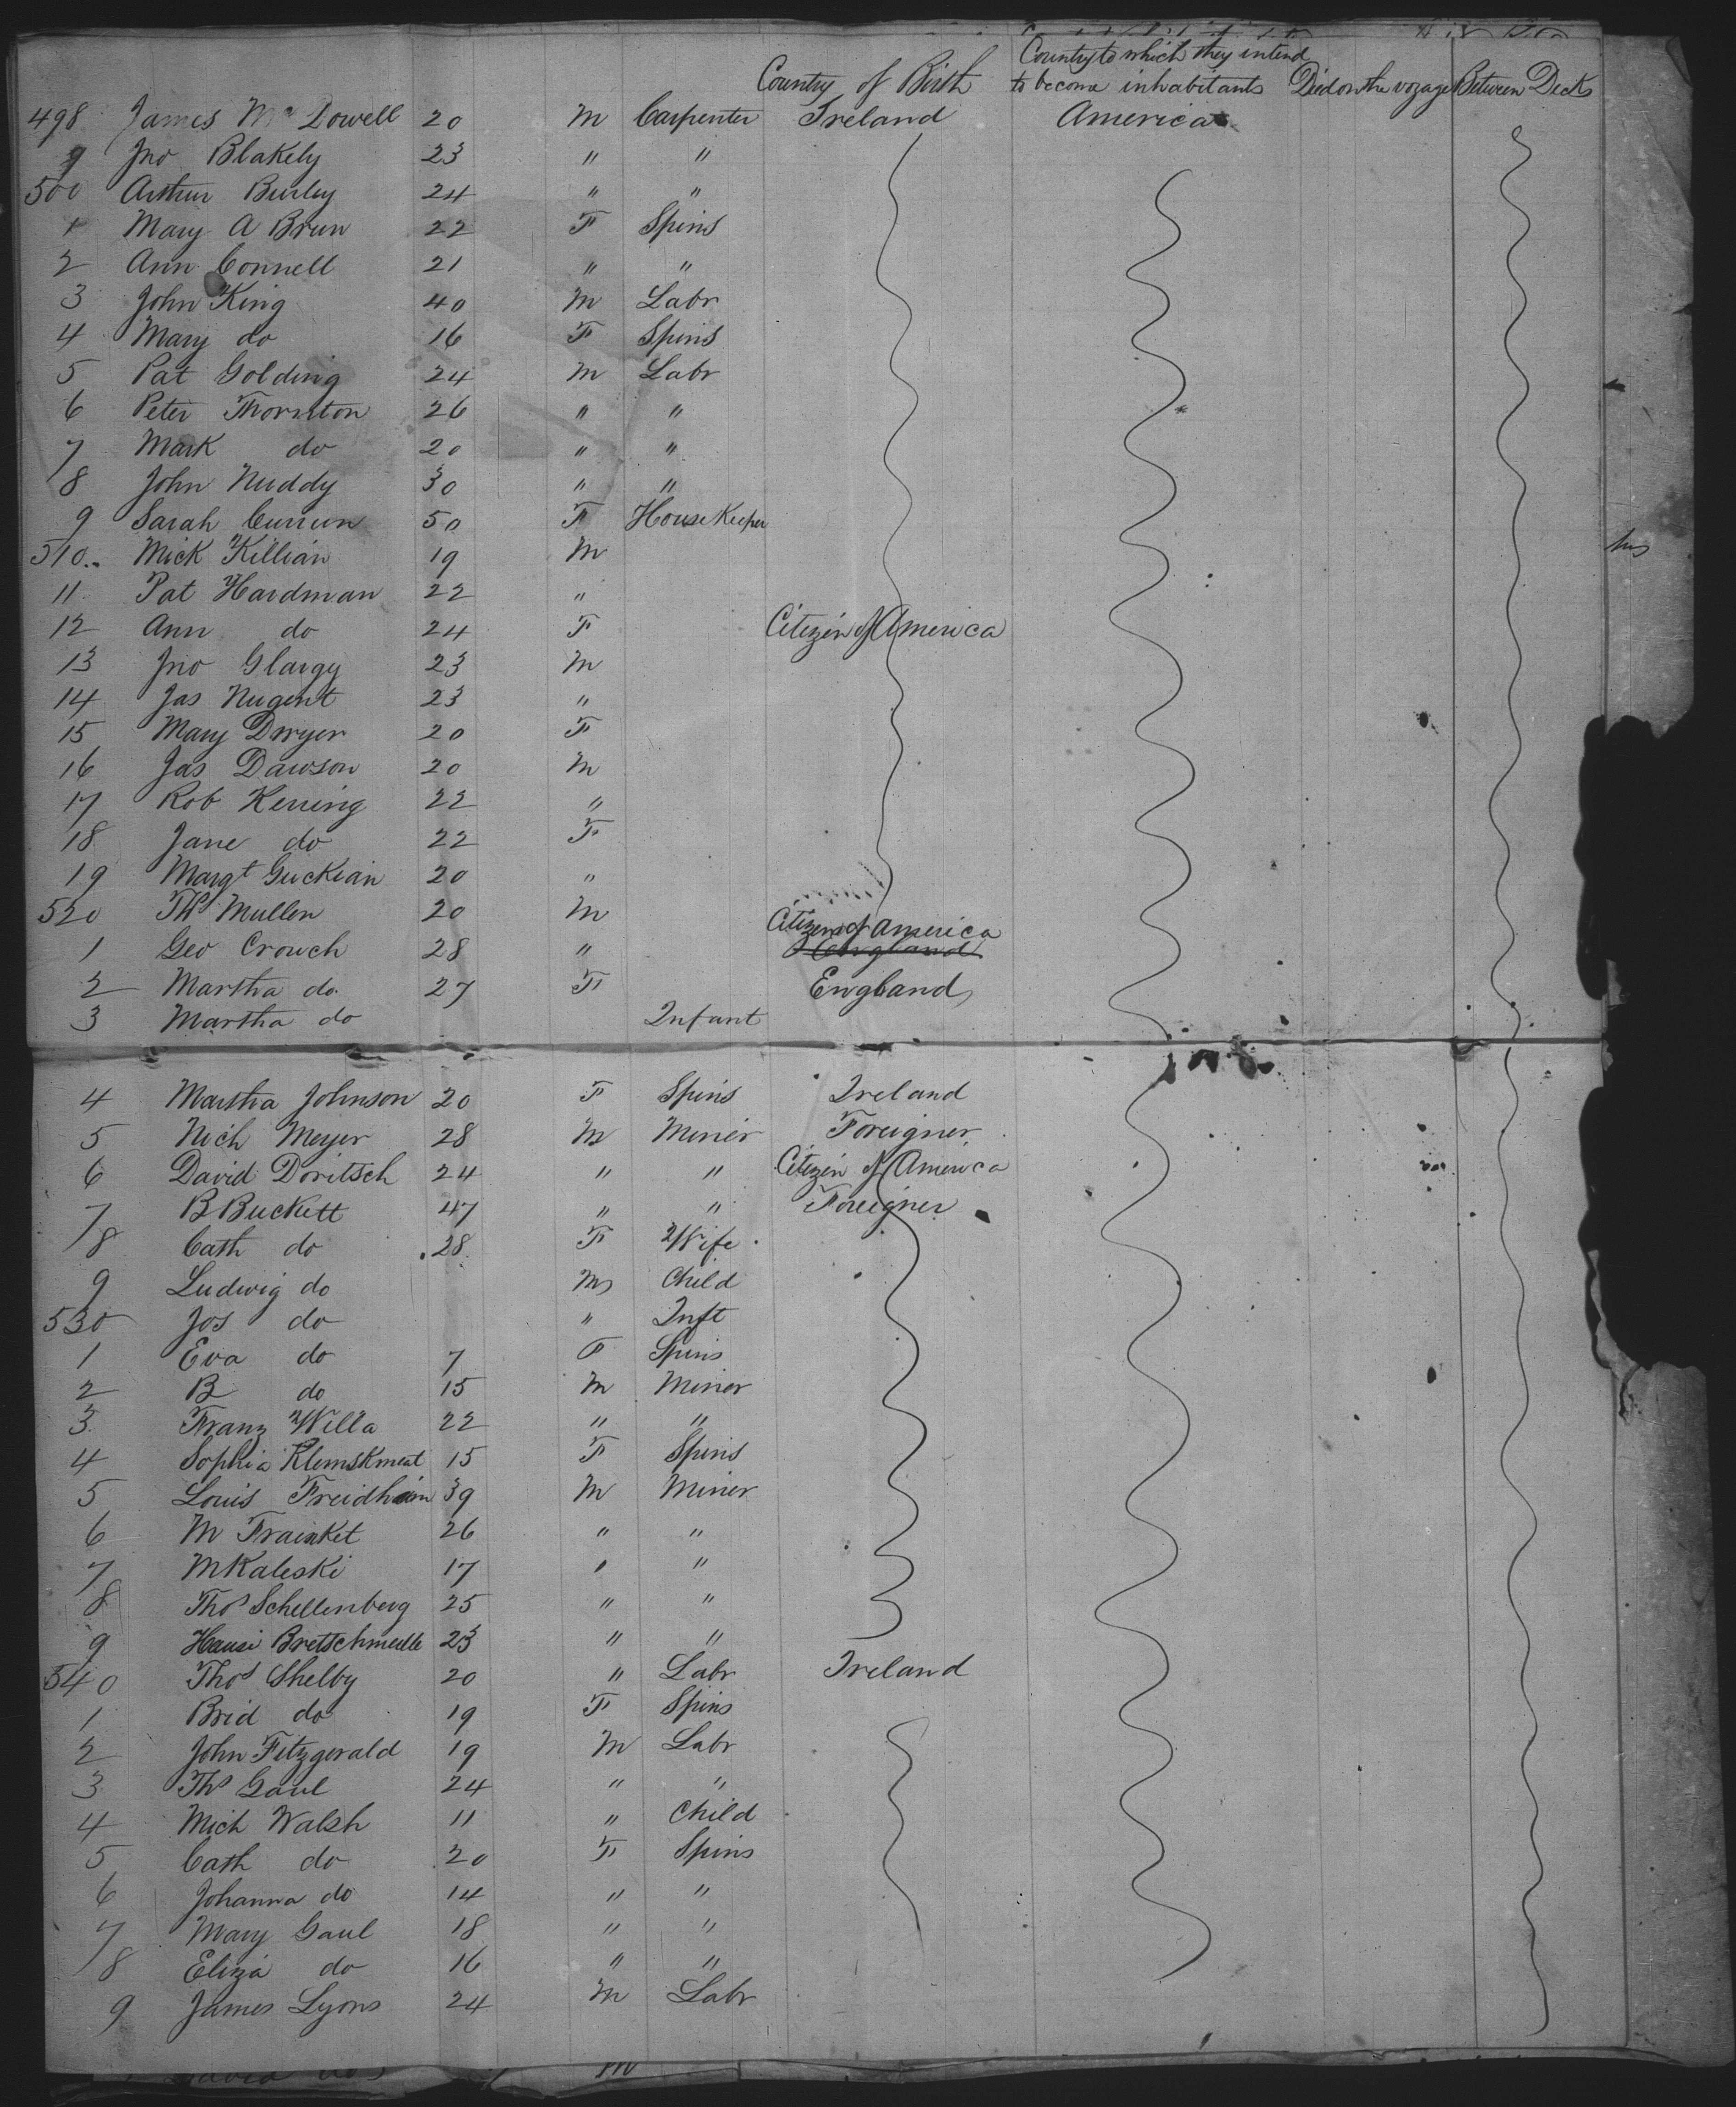 Country of Birth Country to which they intend to become inhabitants Died on the voyage Between Decks
498 James Mc Dowell 20 M Carpenter Ireland America
9 Jno Blakely 23 " "
500 Arthur Burley 24 " "
1 Mary A Brun 22 F Spins
2 Ann Connell 21 " "
3 John King 40 M Labr
4 Mary do 16 F Spins
5 Pat Golding 24 M Labr
6 Peter Thornton 26 " "
7 Mark do 20 " "
8 John Nuddy 30 " "
9 Sarah Curren 50 F HouseKeeper
510 Mick Killian 19 M
11 Pat Hardman 22 "
12 Ann do 24 F Citizen of America
13 Jno Glargy 23 M
14 Jas Nugent 23 "
15 Mary Dwyer 20 F
16 Jas Dawson 20 M
17 Rob Kerring 22 "
18 Jane do 22 F
19 Margt Guckian 20 "
520 Ths Mullen 20 M
1 Geo Crouch 28 " Citizen of America England
2 Martha do 27 F England
3 Martha do Infant
4 Martha Johnson 20 F Spins Ireland
5 Nich Meyer 28 M Miner Foreigner
6 David Doritsch 24 " " Citizen of America
7 B Buckett 47 " " Foreigner
8 Cath do 28 F Wife
9 Ludwig do M Child
530 Jos do " Inft
1 Eva do 7 F Spins
2 B do 15 M Minor
3 Franz Willa 22 " "
4 Sophia Klemskmeat 15 F Spins
5 Louis Freidheim 39 M Miner
6 M Trainket 26 " "
7 M Kaleski 17 " "
8 Thos Schellenberg 25 " "
9 Hausi Bretschmeelle 23 " "
540 Thos Shelby 20 " Labr Ireland
1 Brid do 19 F Spins
2 John Fitzgerald 19 M Labr
3 Ths Gaul 24 " "
4 Mich Walsh 11 " Child
5 Cath do 20 F Spins
6 Johanna do 14 " "
7 Mary Gaul 18 " "
8 Eliza do 16 " "
9 James Lyons 24 M Labr